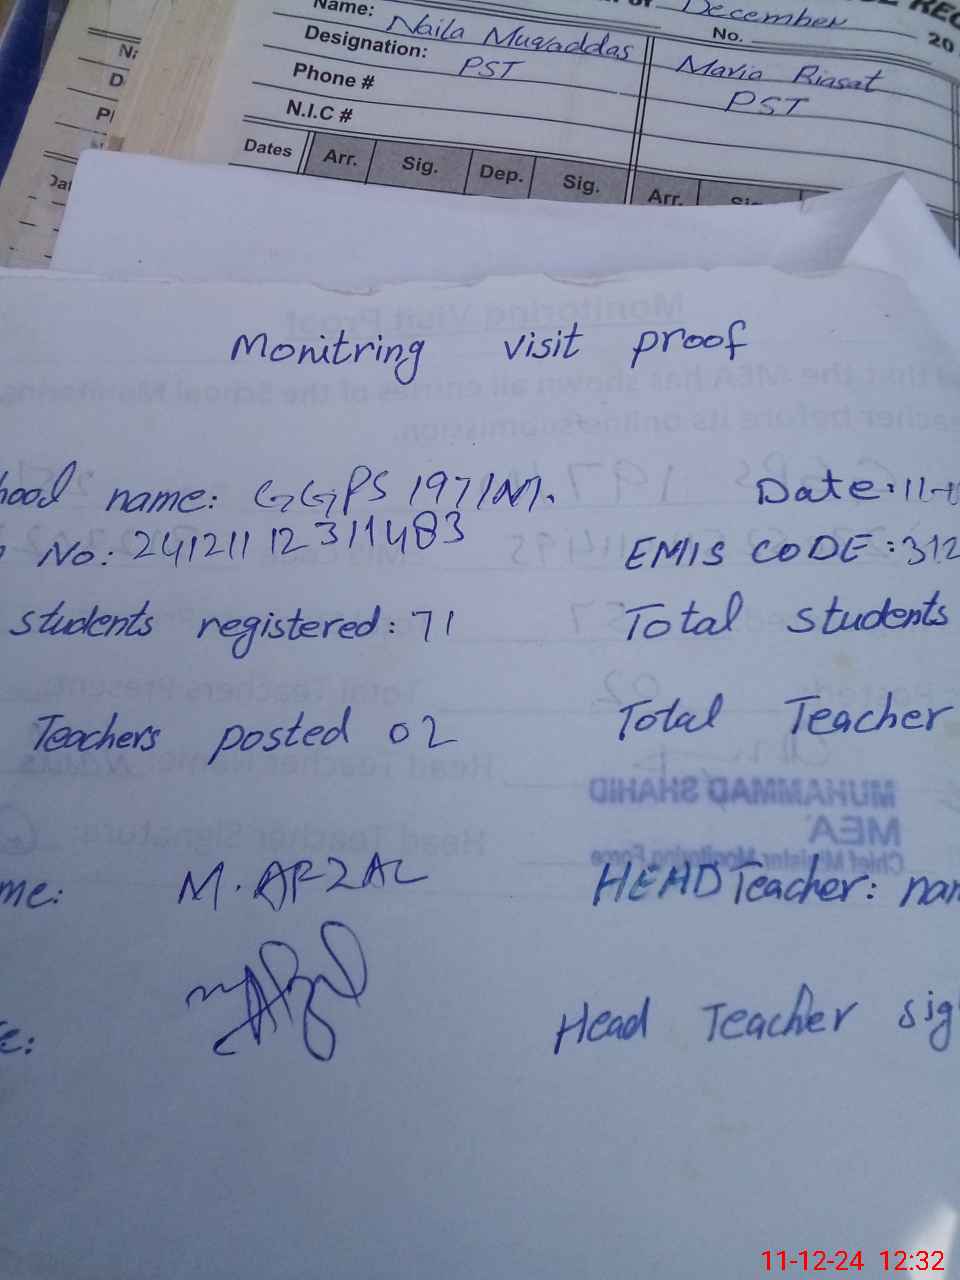 December
No. 20
Name: Naila Muqaddas
Designation: PST
Maria Riasat
PST
Phone #
N.I.C #
Dates Arr. Sig. Dep. Sig. Arr.
Monitring visit proof
name: GGPS 197/M. Date: 11-
No: 24121112311483 EMIS CODE: 312
students registered: 71 Total students
Teachers posted 02 Total Teacher
MUHAMMAD SHAHID
MEA
Chief Minister Monitoring Force
me: M. AFZAL HEAD Teacher: nam
e: Head Teacher sig
11-12-24 12:32